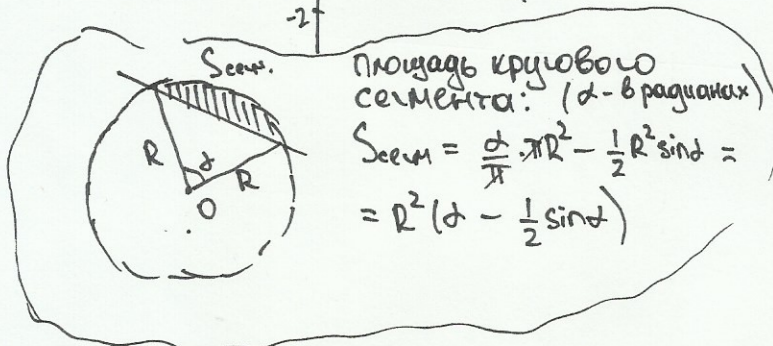 -2
Sсегм.
площадь кругового
сегмента: (α - в радианах)
Sсегм = α/π · πR² - 1/2 R² sinα =
= R² (α - 1/2 sinα)
R
α
R
O